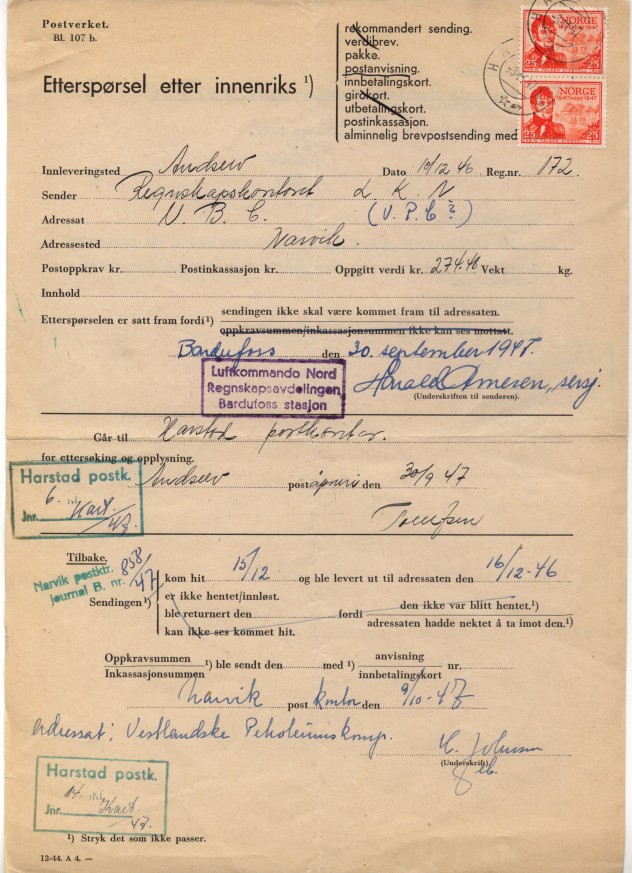 Postverket.
Bl. 107 b.
Etterspørsel etter innenriks ¹)
rekommandert sending.
verdibrev.
pakke.
postanvisning.
innbetalingskort.
girokort.
utbetalingskort.
postinkassasjon.
alminnelig brevpostsending med
NORGE
1647 POST 1947
25 25
NORGE
1647 POST 1947
25 25
Innleveringsted Andselv Dato 10/12 46 Reg.nr. 172.
Sender Regnskapskontoret L K N
Adressat V. B. C. (V.P.C?)
Adressested Narvik.
Postoppkrav kr. Postinkassasjon kr. Oppgitt verdi kr. 274.40 Vekt kg.
Innhold
Etterspørselen er satt fram fordi ¹) sendingen ikke skal være kommet fram til adressaten.
oppkravsummen/inkassasjonsummen ikke kan ses mottatt.
Bardufoss den 30. september 1947.
Luftkommando Nord
Regnskapsavdelingen
Bardufoss stasjon
Harald Arnesen, sersj.
(Underskriften til senderen.)
Går til Harstad postkontor.
for ettersøking og opplysning.
Andselv poståpneri den 30/9 47
Harstad postk.
6. Kart.
Jnr. 47.
Tilbake.
Narvik postktr.
journal B. nr. 858/47
Sendingen ¹)
kom hit 15/12 og ble levert ut til adressaten den 16/12-46
er ikke hentet/innløst.
ble returnert den fordi den ikke var blitt hentet.¹)
adressaten hadde nektet å ta imot den.¹)
kan ikke ses kommet hit.
Oppkravsummen
Inkassasjonsummen ¹) ble sendt den med ¹) anvisning
innbetalingskort nr.
Narvik post kontor den 9/10-47
Adressat: Vestlandske Petroleumskomp.
(Underskrift)
Harstad postk.
14. Kart.
Jnr. 47.
¹) Stryk det som ikke passer.
12-44. A 4. —